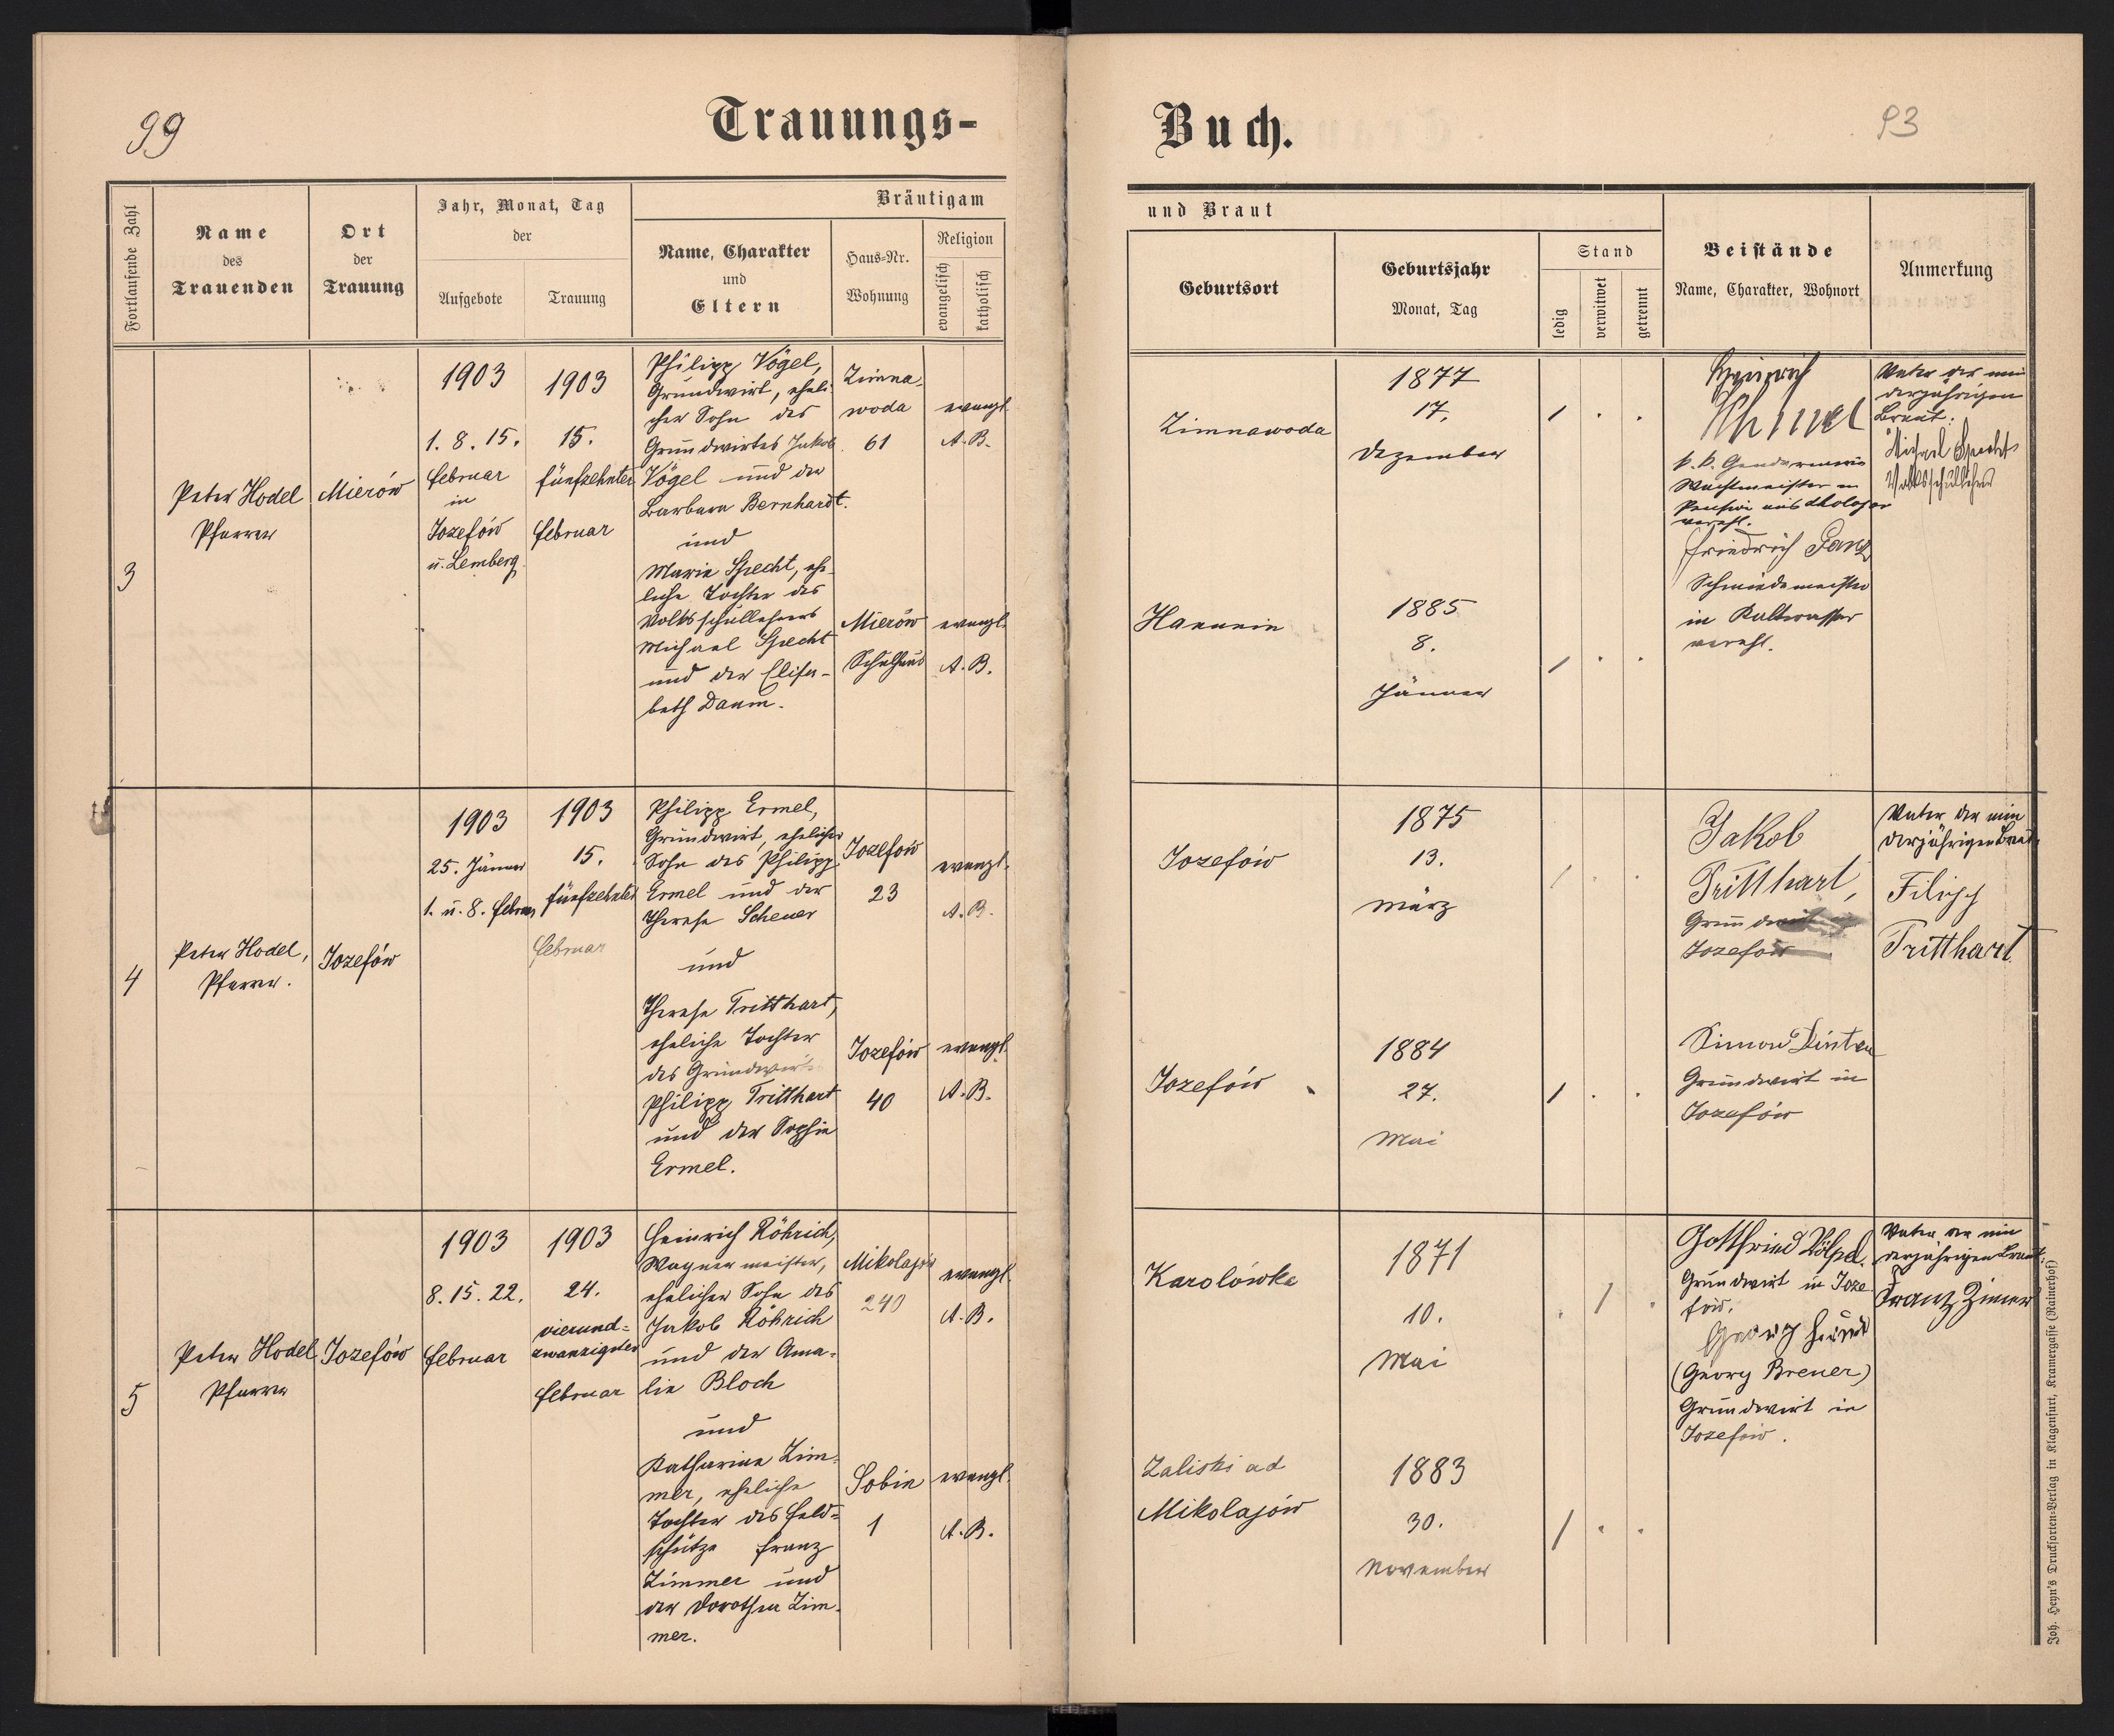 99
Trauungs-
Buch.
93
Fortlaufende Zahl
Name
des
Trauenden
Ort
der
Trauung
Jahr, Monat, Tag
der
Aufgebote
Trauung
Bräutigam
Name, Charakter
und
Eltern
Haus-Nr.
Wohnung
Religion
evangelisch
katholisch
und Braut
Geburtsort
Geburtsjahr
Monat, Tag
Stand
ledig
verwitwet
getrennt
Beistände
Name, Charakter, Wohnort
Anmerkung
3
Peter Hodel
Pfarrer
Mierów
1903
1. 8. 15.
Februar
in
Jozefów
u. Lemberg.
1903
15.
fünfzehnter
Februar
Philipp Vögel,
Grundwirt, eheli-
cher Sohn des
Grundwirtes Jakob
Vögel und der
Barbara Bernhardt.
und
Marie Specht, ehe-
liche Tochter des
Volksschullehrers
Michael Specht
und der Elisa-
beth Daum.
Zimna-
woda
61
evangl.
A. B.
Mierów
Schulhaus
evangl.
A. B.
Zimnawoda
1877
17.
Dezember
Hanunin
1885
8.
Jänner
Heinrich
k. k. Gendarmerie
Wachtmeister in
Pension aus
verehl.
Friedrich
Schmiedemeister
in Kaltwasser
verehl.
Vater der min
derjährigen
Braut:
Michael Specht
Volksschullehrer
4
Peter Hodel,
Pfarrer.
Jozefów
1903
25. Jänner
1. u. 8. Februar
1903
15.
fünfzehnter
Februar
Philipp Ermel,
Grundwirt, ehelicher
Sohn des Philipp
Ermel und der
Therese Scheuer
und
Therese Tritthart,
eheliche Tochter
des Grundwirts
Philipp Tritthart
und der Sophie
Ermel.
Jozefów
23
evangl.
A. B.
Jozefów
40
evangl.
A. B.
Jozefów
1875
13.
März
Jozefów
1884
27.
Mai
Jakob
Tritthart,
Grundwirt in
Jozefów
Simon
Grundwirt in
Jozefów
Vater der min
derjährigen Braut
Filipp
Tritthart
5
Peter Hodel
Pfarrer
Jozefów
1903
8. 15. 22.
Februar
1903
24.
vierund-
zwanzigster
Februar
Heinrich Röhrich,
Wagnermeister,
ehelicher Sohn des
Jakob Röhrich
und der Ama-
lie Bloch
und
Katharina Zim-
mer, eheliche
Tochter des Feld-
schütze Franz
Zimmer und
der Dorothea Zim-
mer.
Mikolajów
240
evangl.
A. B.
Sobin
1
evangl.
A. B.
Karolówka
1871
10.
Mai
Zaliski ad
Mikolajów
1883
30.
November
Gottfried Völpel,
Grundwirt in Joze
fów.
Georg
(Georg Brener)
Grundwirt in
Jozefów.
Vater der min
derjährigen Braut:
Franz Zimer
Joh. Heyn's Drucksorten-Verlag in Klagenfurt, Kramergasse (Rainerhof)